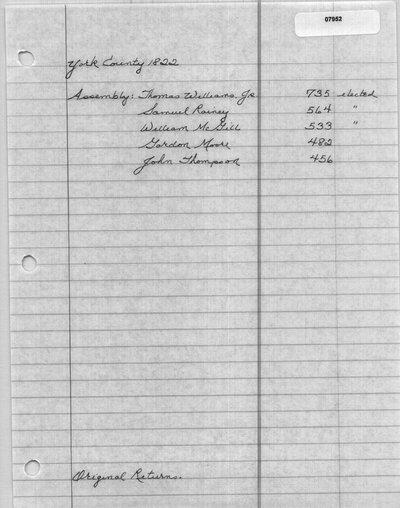 07952
York County 1822
Assembly: Thomas Williams Jr 735 elected
Samuel Rainey 564 "
William McGill 533 "
Gordon Moore 482
John Thompson 456
Original Returns.